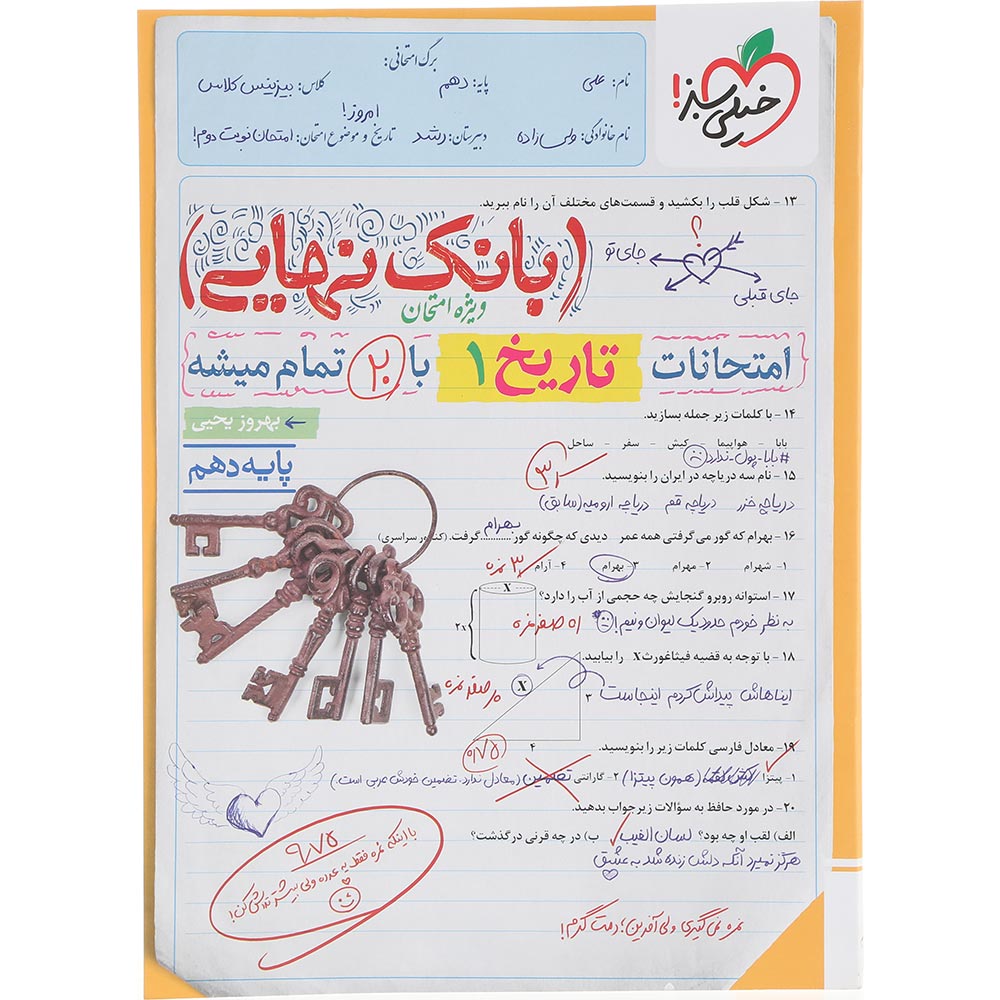 خیلی سبز!
برگ امتحانی:
نام: علی پایه: دهم کلاس: بیزینس کلاس
امروز!
نام خانوادگی: ولی زاده دبیرستان: رشد تاریخ و موضوع امتحان: امتحان نوبت دوم!
۱۳ - شکل قلب را بکشید و قسمت‌های مختلف آن را نام ببرید.
؟
جای تو
جای قبلی
(بانک نهایی)
ویژه امتحان
امتحانات تاریخ ۱ با ۲۰ تمام میشه
۱۴ - با کلمات زیر جمله بسازید.
بهروز یحیی
بابا - هواپیما - کیش - سفر - ساحل
#بابا-پول-ندارد
پایه دهم
۱۵ - نام سه دریاچه در ایران را بنویسید.
دریاچه خزر دریاچه قم دریاچه ارومیه (سابق)
۱۶ - بهرام که گور می گرفتی همه عمر دیدی که چگونه گور بهرام گرفت. (کنکور سراسری)
۱- شهرام ۲- مهرام ۳- بهرام ۴- آرام
۱۷ - استوانه روبرو گنجایش چه حجمی از آب را دارد؟
X
2X
به نظر خودم حدود یک لیوان و نیم!
۱۸ - با توجه به قضیه فیثاغورث X را بیابید.
X
۳
۴
ایناهاش پیداش کردم اینجاست
۰/۷۵
۱۹- معادل فارسی کلمات زیر را بنویسید.
۱- پیتزا (همون پیتزا) ۲- گارانتی تضمین (معادل ندارد. تضمین خودش عربی است.)
۲۰- در مورد حافظ به سؤالات زیر جواب بدهید.
الف) لقب او چه بود؟ لسان الغیب ب) در چه قرنی درگذشت؟
هرگز نمیرد آنکه دلش زنده شد به عشق
۹/۷۵
با اینکه نمره فقط یه عدده ولی بیشتر تلاش کن!
نمره نمی‌گیری ولی آفرین؛ دمت گرم!